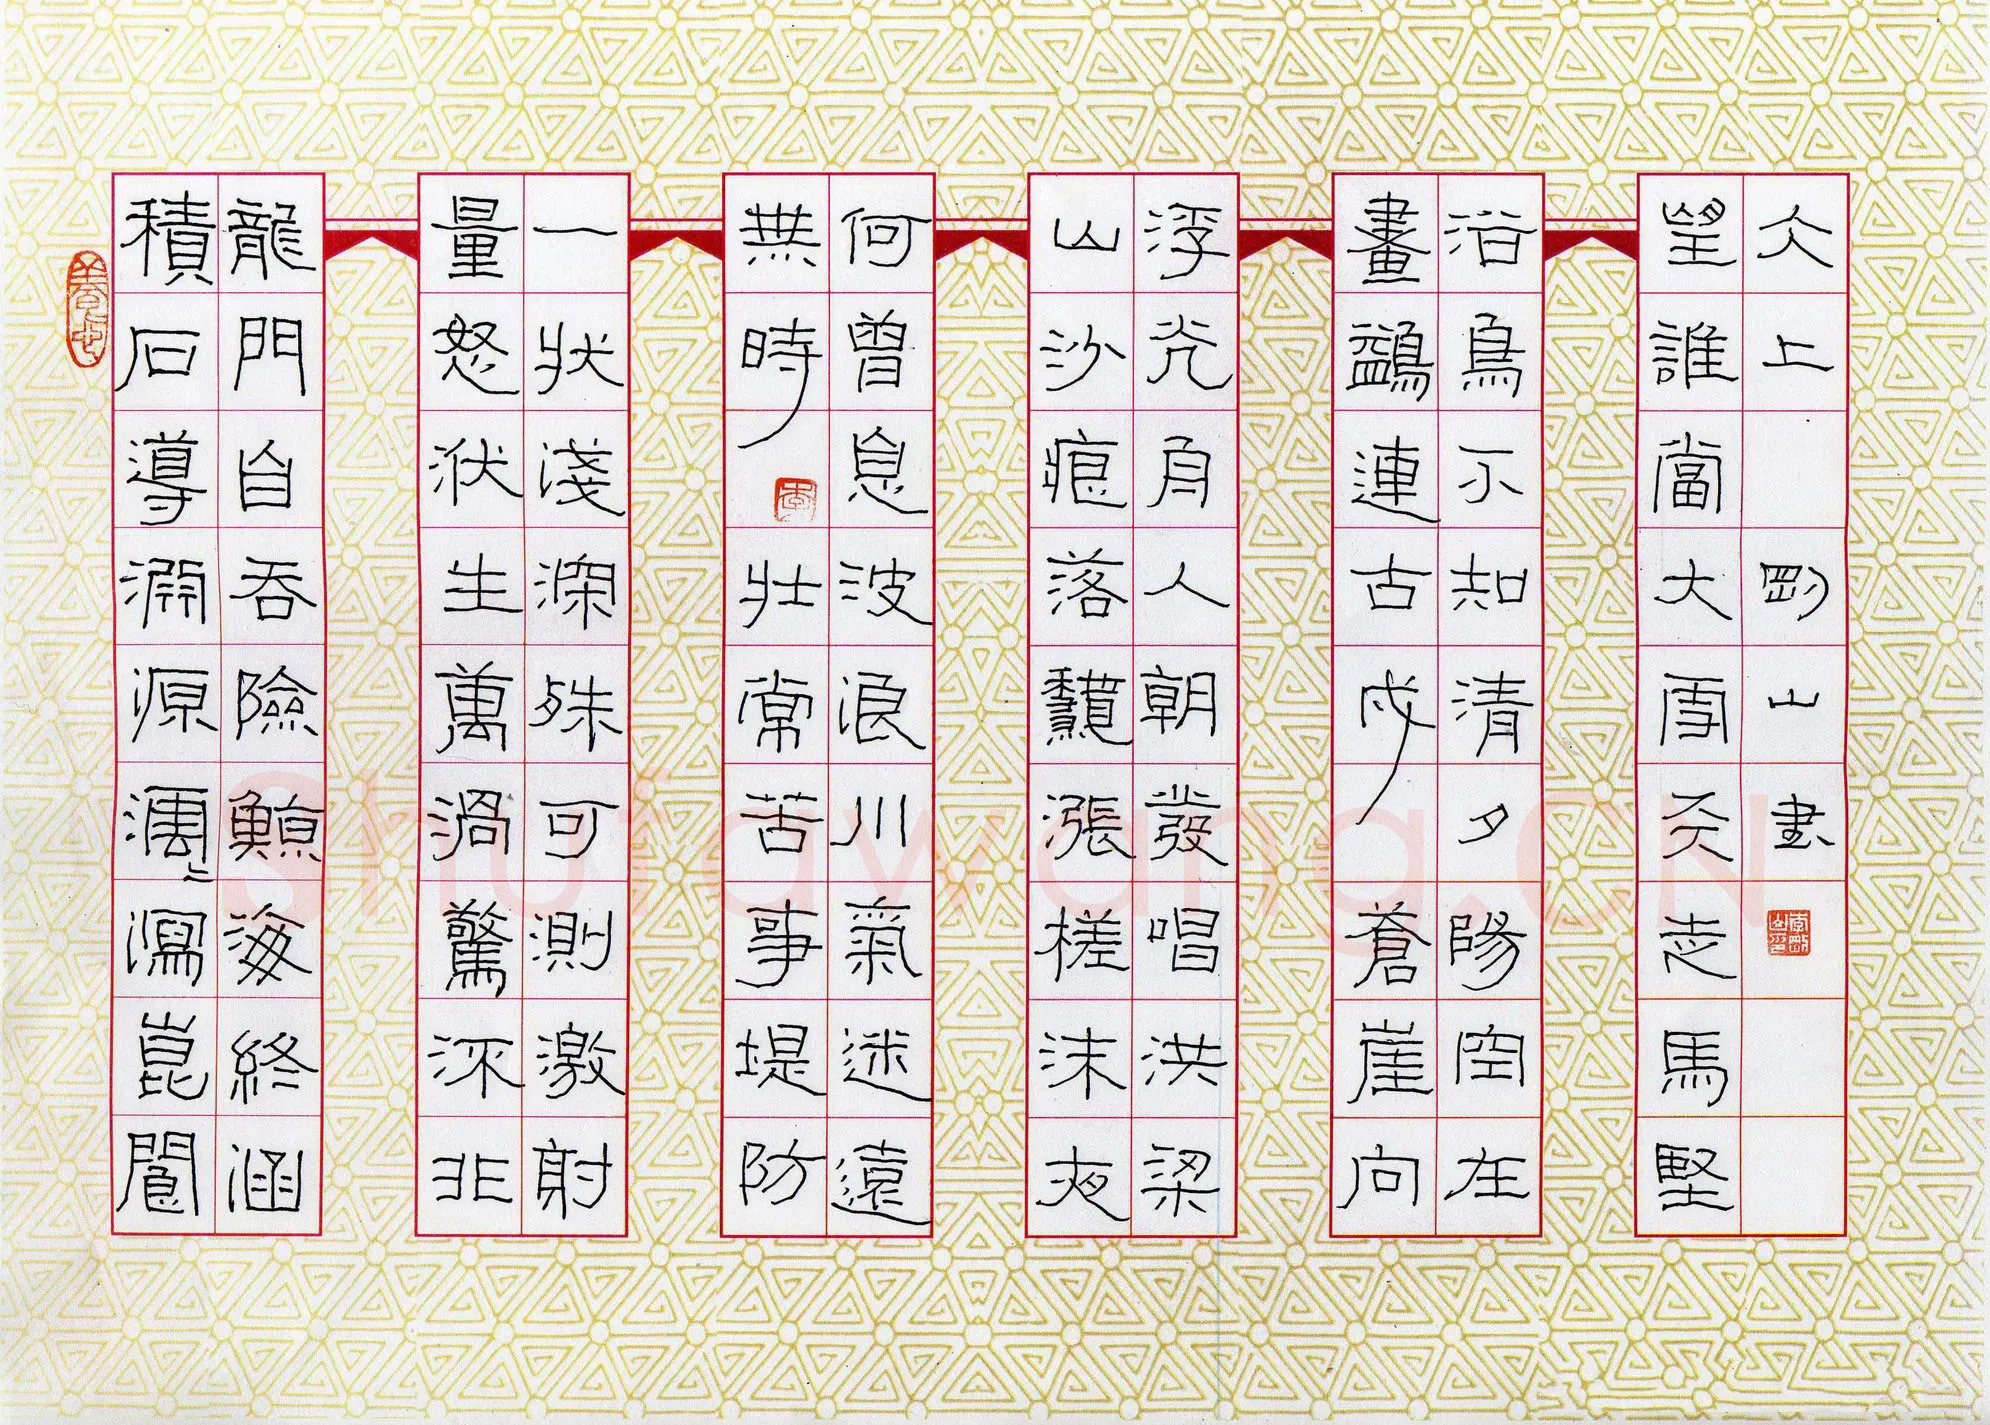 積石導淵源澐々瀉崑閬
龍門自吞險鯨海終涵
量怒洑生萬渦驚流非
一狀淺深殊可測激射
無時壯常苦事堤防
何曾息波浪川氣迷遠
山沙痕落驟漲槎沫夜
浮光舟人朝發唱洪梁
畫鷁連古戍蒼崖向
浴鳥不知清夕陽空在
望誰當大雪天走馬堅
冰上 剛山書
shufawang.CN